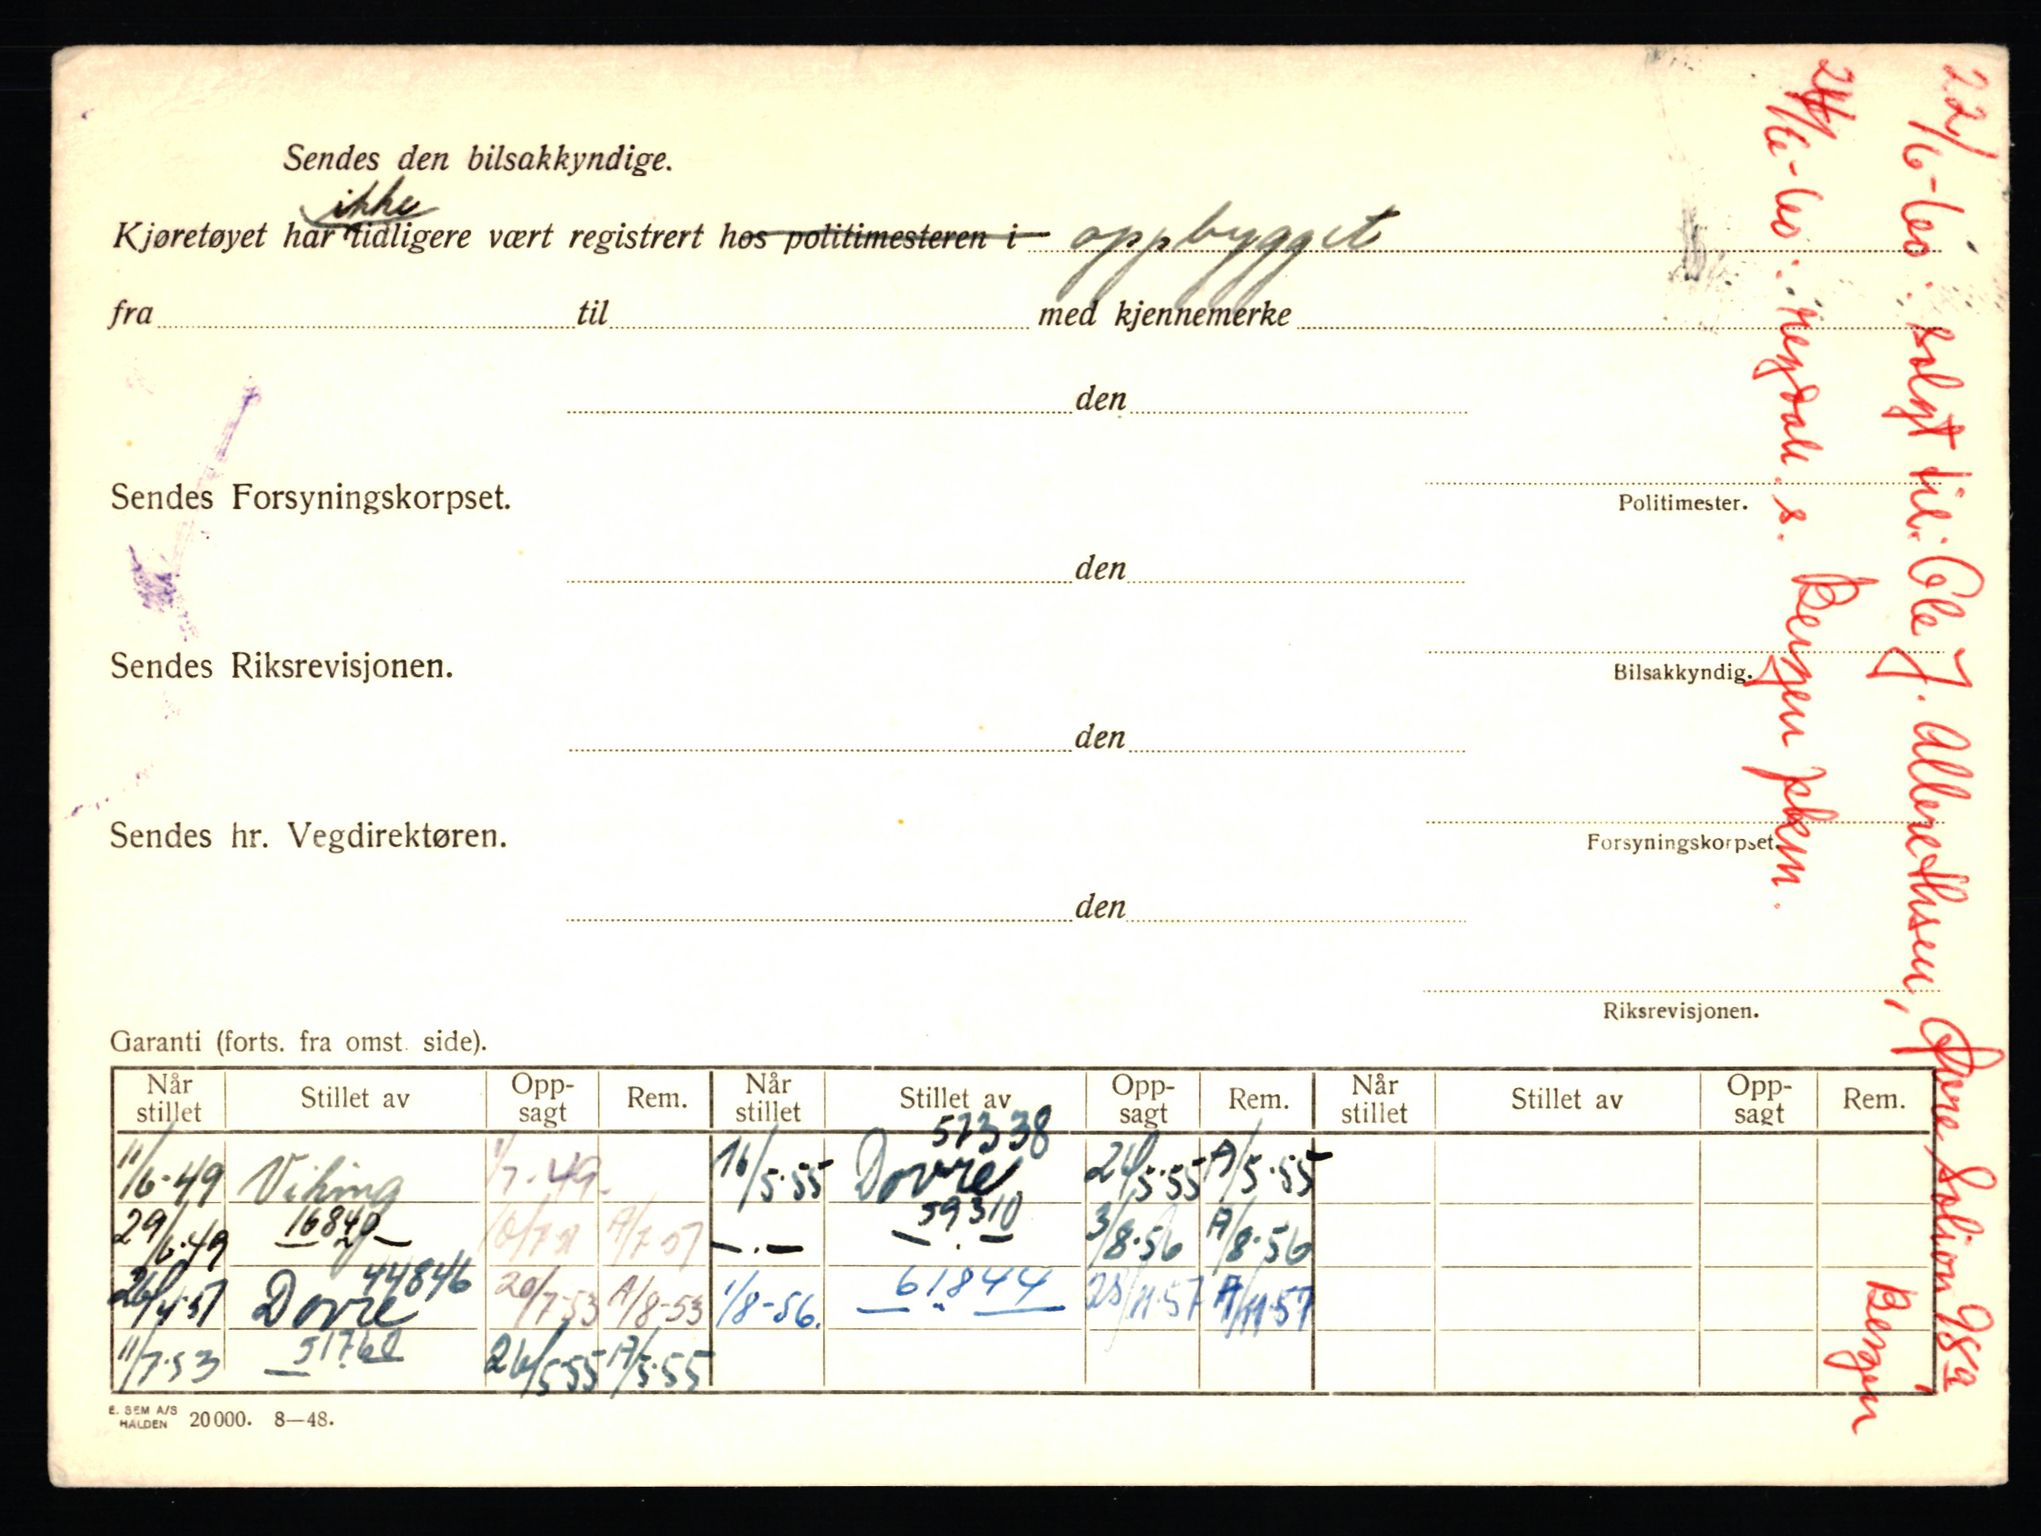 Sendes den bilsakkyndige.
ikke
Kjøretøyet har tidligere vært registrert hos politimesteren i oppbygget
fra til med kjennemerke
den
Sendes Forsyningskorpset.
Politimester.
den
Sendes Riksrevisjonen.
Bilsakkyndig.
den
Sendes hr. Vegdirektøren.
Forsyningskorpset.
den
Riksrevisjonen.
Garanti (forts. fra omst. side).
Når stillet Stillet av Opp-sagt Rem. Når stillet Stillet av Opp-sagt Rem. Når stillet Stillet av Opp-sagt Rem.
57338
11/6-49 Viking 1/7-49. 16/5-55 Dovre 24/5-55 A/5-55
29/6-49 16840 A/7-57 —.— 59310 3/8-56 A/8-56
44846
26/4-51 Dovre 20/7-53 A/8-53 1/8-56. 61844 28/11-57 A/11-57
11/7-53 51760 26/5-55 A/5-55
E. SEM A/S
HALDEN 20000. 8—48.
22/6-60: solgt til: Ole J. Allerethsen, Øvre Solion 98a
Bergen
24/6-60: regdali s. Bergen pkm.